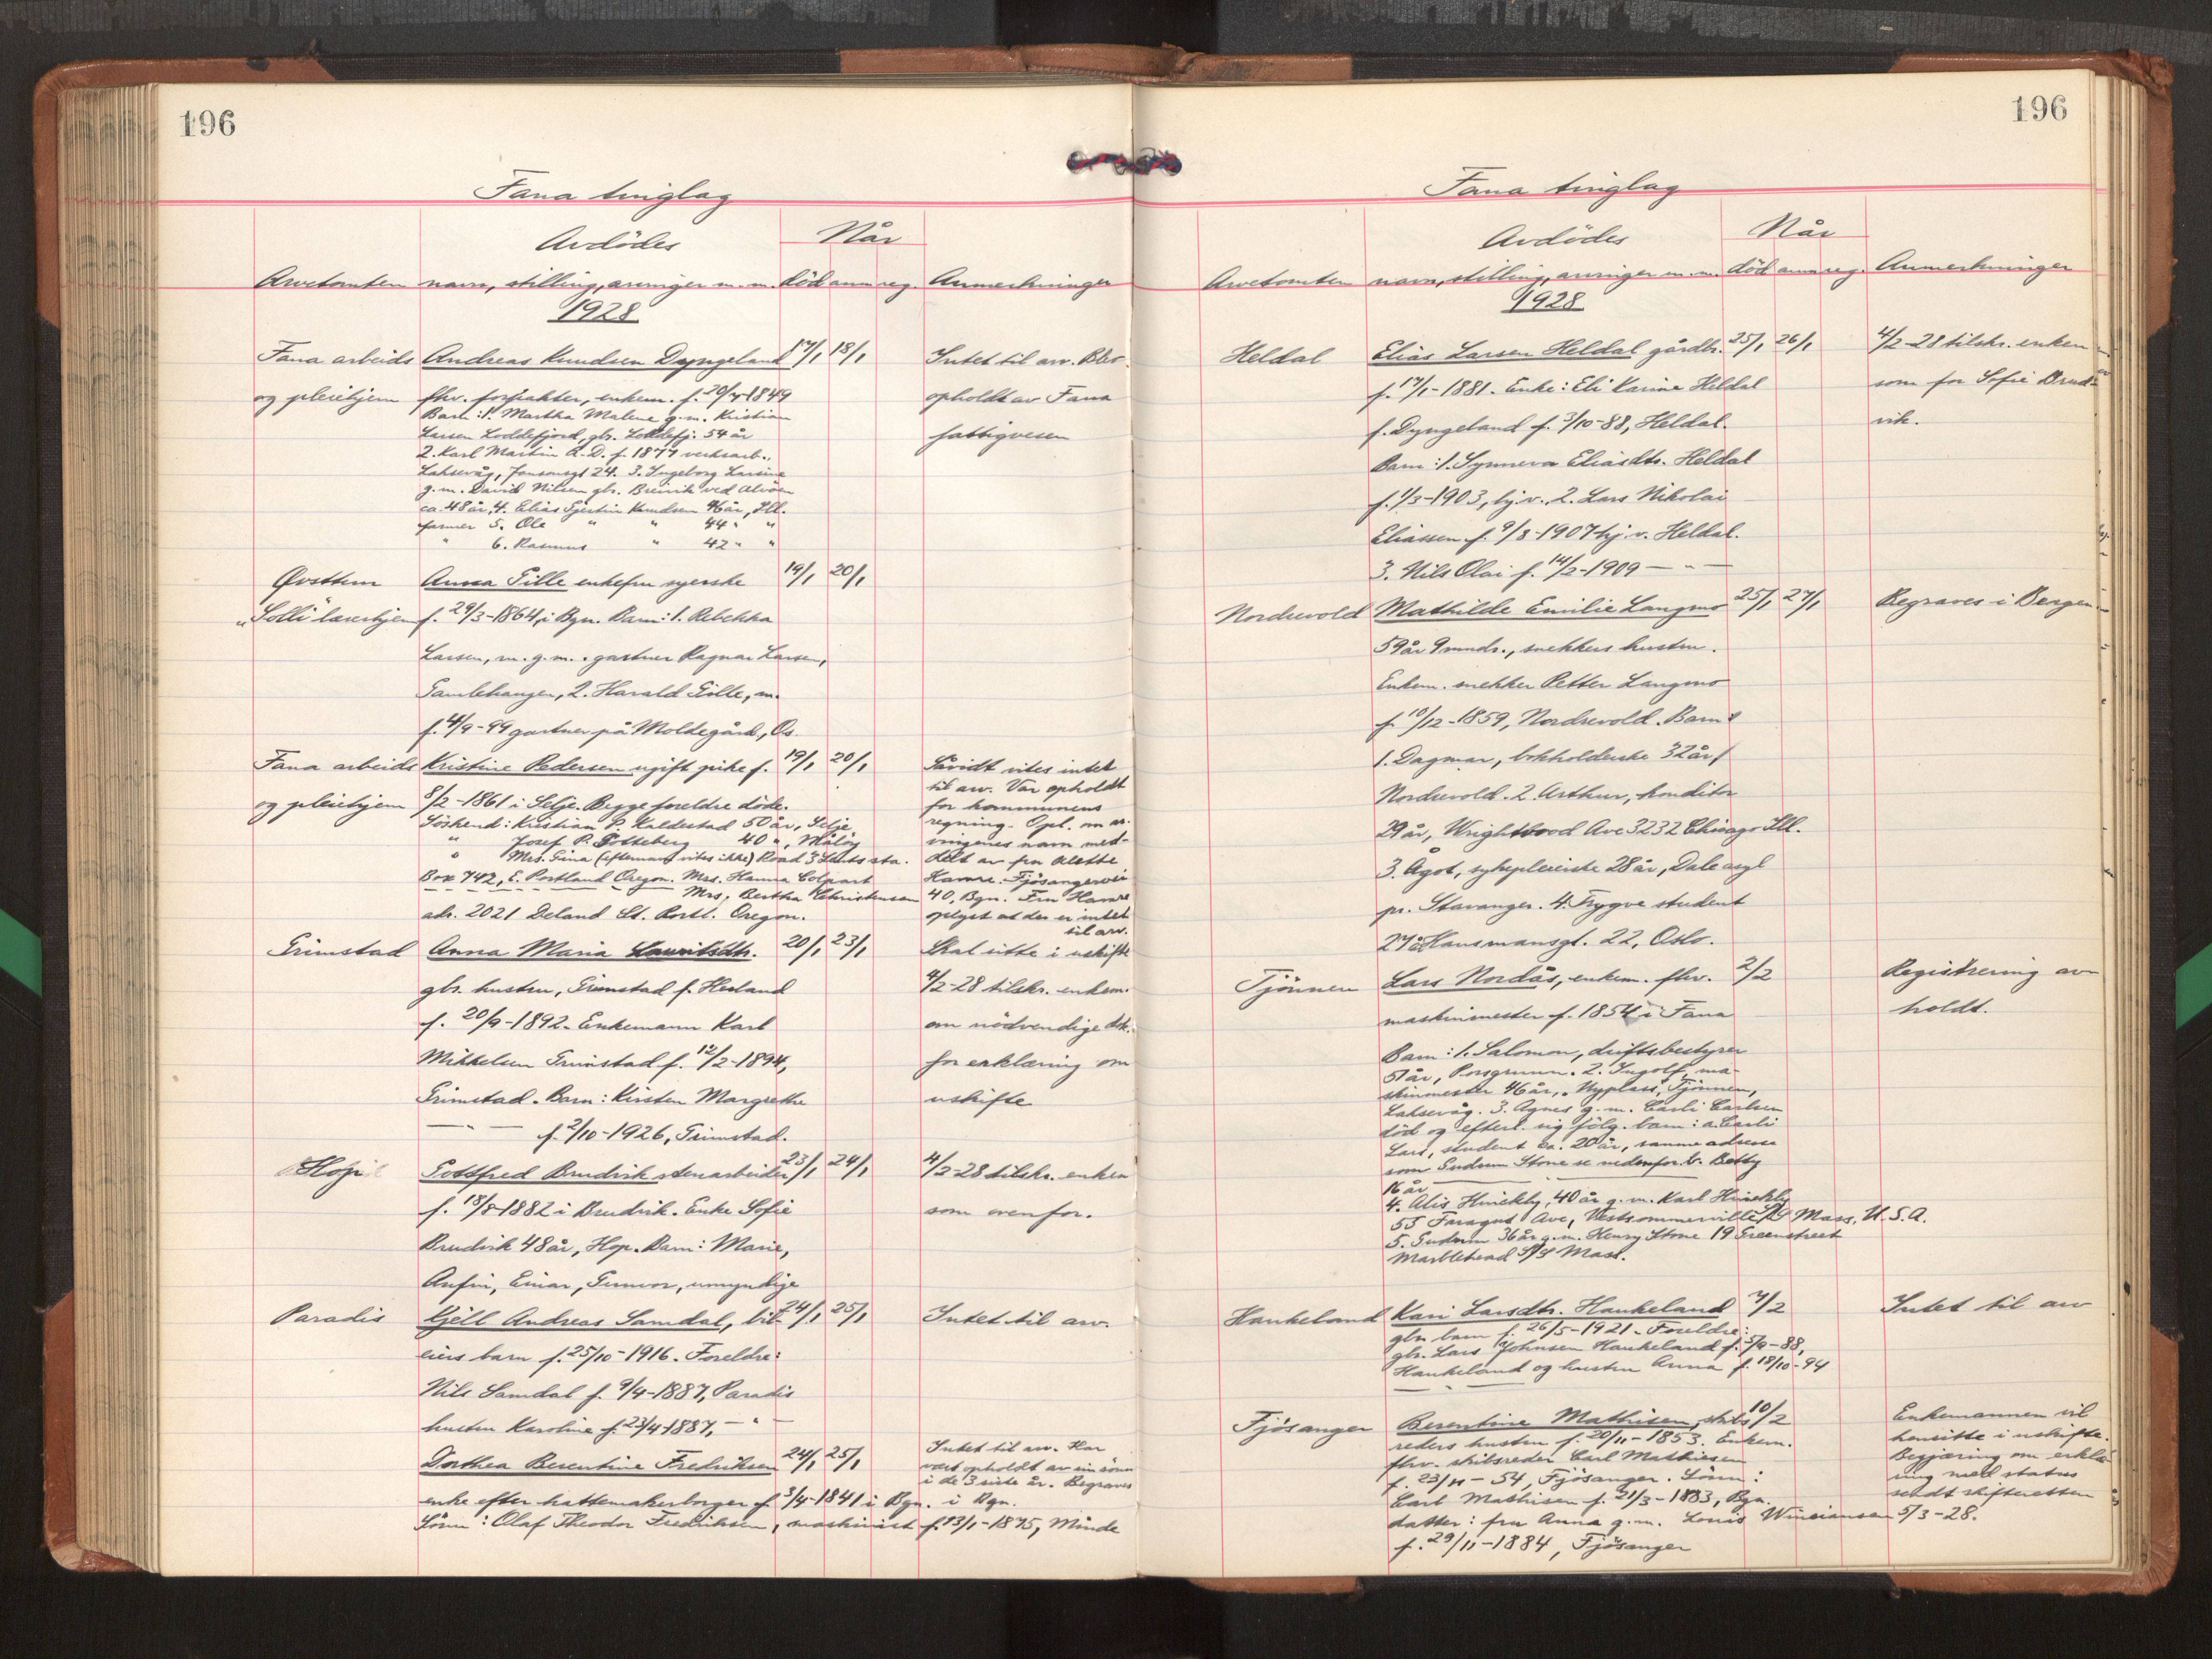 196
Fana tinglag
Avdødes
Når
Arvetomten navn, stilling, arvinger m.m. død anm reg. Anmerkninger
1928
Fana arbeids Andreas Knudsen Dyngeland 17/1 18/1 Intet til arv. Blev
og pleiehjem fhv. forpakter, enkem. f. 20/4-1849 opholdt av Fana
Barn: 1. Martha Malene g.m. Kristian
Larsen Loddefjord, gbr. Loddefj. 54 år fattigvesen
2. Karl Martin A.D. f. 1877 verksarb.,
Laksevåg, Jansonsgt 24. 3. Ingeborg Larsine
g.m. David Nilsen gbr. Breivik ved Alvöen
ca. 48 år, 4. Elias Gjertin Knudsen 46 år, Ill.
farmer 5. Ole " " 44 " "
" 6. Rasmus " 42 " "
Øvsttun Anna Gille enkefru syerske 19/1 20/1
"Solli" lærerhjem f. 29/3-1864, i Bgn. Barn: 1. Rebekka
Larsen, m. g.m. gartner Ragnar Larsen,
Gamlehaugen, 2. Harald Gille, m.
f. 4/9-99 gartner på Moldegård, Os.
Fana arbeids Kristine Pedersen ugift pike f. 19/1 20/1 Såvidt vites intet
til arv. Var opholdt
og pleiehjem 8/2-1861 i Selje. Begge foreldre döde. for kommunens
Söskend: Kristian P. Kaldestad 50 år, Selje regning. Opl. om ar-
" Josef P. Totteberg 40 ", Måløy vingenes navn med-
" Mrs. Gina (efternavn vites ikke) Road 3 sta. delt av fru Alette
Box 742, E. Portland Oregon. Mrs. Hanna Hamre. Fjösangervei
Mrs. Bertha Christensen 40, Bgn. Fru Hamre
adr. 2021 Deland St. Portl. Oregon. oplyst at der er intet
til arv.
Grimstad Anna Maria Lauritsdtr. 20/1 23/1 Skal sitte i uskifte
gbr. hustru, Grimstad f. Hesland 4/2-28 tilskr. enkem.
f. 20/9-1892. Enkemann Karl om nödvendige dok.
Mikkelsen Grimstad f. 12/2-1894, for erklæring om
Grimstad. Barn: Kirsten Margrethe uskifte
— " — f. 2/10-1926, Grimstad.
Hop Gottfred Brudvik stenarbeider 23/1 24/1 4/2-28 tilskr. enken
f. 18/8-1882 i Brudvik. Enke Sofie som ovenfor.
Brudvik 48 år, Hop. Barn: Marie,
Anfin, Einar, Gunvor, umyndige
Paradis Kjell Andreas Samdal, bil- 24/1 25/1 Intet til arv.
eiers barn f. 25/10-1916. Foreldre:
Nils Samdal f. 9/4-1887, Paradis
hustru Karoline f. 23/4-1887, — " —
Dorthea Berentine Fredriksen 24/1 25/1 Intet til arv. Har
vært opholdt av sin sönn
i de 3 siste år. Begraves
enke efter hattemakerborger f. 3/4-1841 i Bgn. i Bgn.
Sönn: Olaf Theodor Fredriksen, maskinist f. 13/1-1875, Minde
196
Fana tinglag
Avdødes
Når
Arvetomten navn, stilling, arvinger m.m. död anm reg. Anmerkninger
1928
Heldal Elias Larsen Heldal gårdbr. 25/1 26/1 4/2-28 tilskr. enken
f. 17/1-1881. Enke: Eli Karine Heldal som for Sofie Brud-
f. Dyngeland f. 3/10-88, Heldal. vik.
Barn: 1. Synneva Eliasdtr. Heldal
f. 1/3-1903, hj.v., 2. Lars Nikolai
Eliassen f. 9/8-1907 hj.v. Heldal.
3. Nils Olai f. 14/2-1909 — " —
Nordrevold Mathilde Emilie Langmo 25/1 27/1 Begraves i Bergen
59 år 9 mndr., snekkers hustru.
Enkem. snekker Petter Langmo
f. 10/12-1859, Nordrevold. Barn:
1. Dagmar, bokholderske 32 år,
Nordrevold. 2. Arthur, konditor
29 år, Wrightwood Ave 3232 Chicago Ill.
3. Ågot, sykepleierske 28 år, Dale asyl
pr. Stavanger. 4. Trygve student
27 år Hausmansgt. 22, Oslo.
Tjönnen Lars Nordås, enkem. fhv. 2/2 Registrering av-
maskinmester f. 1854 i Fana holdt.
Barn: 1. Salomon, driftsbestyrer
51 år, Porsgrunn. 2. Ingolf, ma-
skinmester 46 år, "Nyplass", Tjönnen,
Laksevåg. 3. Agnes g.m. Carli Carlsen
död og efterl. sig fölg. barn: a. Carli
Lars, student ca. 20 år, samme adresse
som Gudrun Stone se nedenfor. b. Betty
16 år
4. Alis Hinckly, 40 år g.m. Karl Hinckly
55 Faragut Ave, Vestsommerville P/S Mass, U.S.A.
5. Gudrun 36 år g.m. Henry Stone 19 Greenstreet
Marblehead P/S Mass.
Haukeland Kari Larsdtr. Haukeland 7/2 Intet til arv
gbr. barn f. 26/5-1921. Foreldre:
gbr. Lars Johnsen Haukeland f. 5/9-88,
Haukeland og hustru Anna f. 18/10-94
Fjösanger Berentine Mathisen, skibs 10/2 Enkemannen vil
reders hustru f. 20/11-1853. Enkem. hensitte i uskifte.
fhv. skibsreder Carl Mathiesen Begjæring om erklæ-
f. 23/11-54, Fjösanger. Sönn: ring med status
Carl Mathisen f. 21/3-1883, Bgn. sendt skifteretten
datter: fru Anna g.m. Louis Winciansen 5/3-28.
f. 29/11-1884, Fjösanger